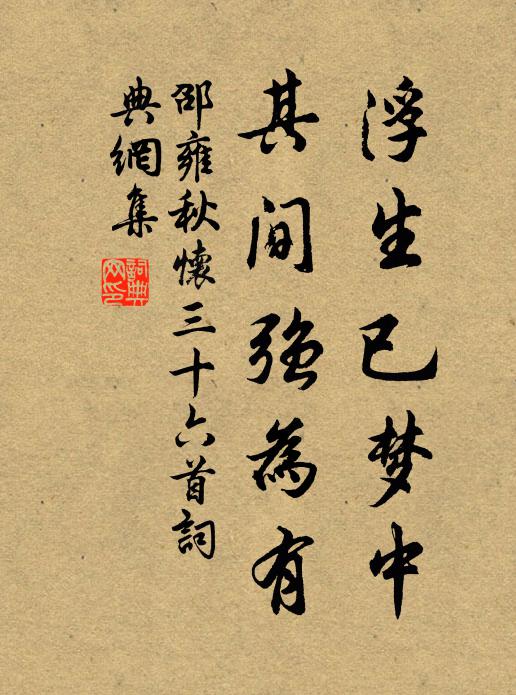 浮生已梦中
其间強為有
邵雍秋懷三十六首詞
典網集
詞典
网印